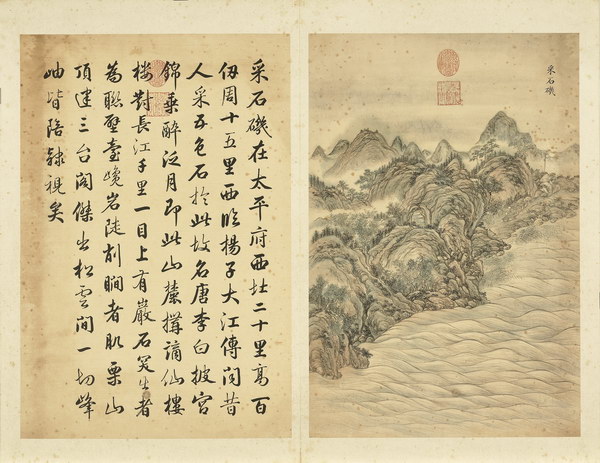 采石磯
采石磯在太平府西北二十里高百
仞周十五里西臨楊子大江傳聞昔
人采五色石於此故名唐李白披宮
錦乘醉泛月即此山麓搆謫仙樓
樓對長江千里一目上有巖石突出者
為聯壁臺巉岩陡削瞯者肌栗山
頂建三台閣傑出松雲間一切峰
岫皆陪隸視矣